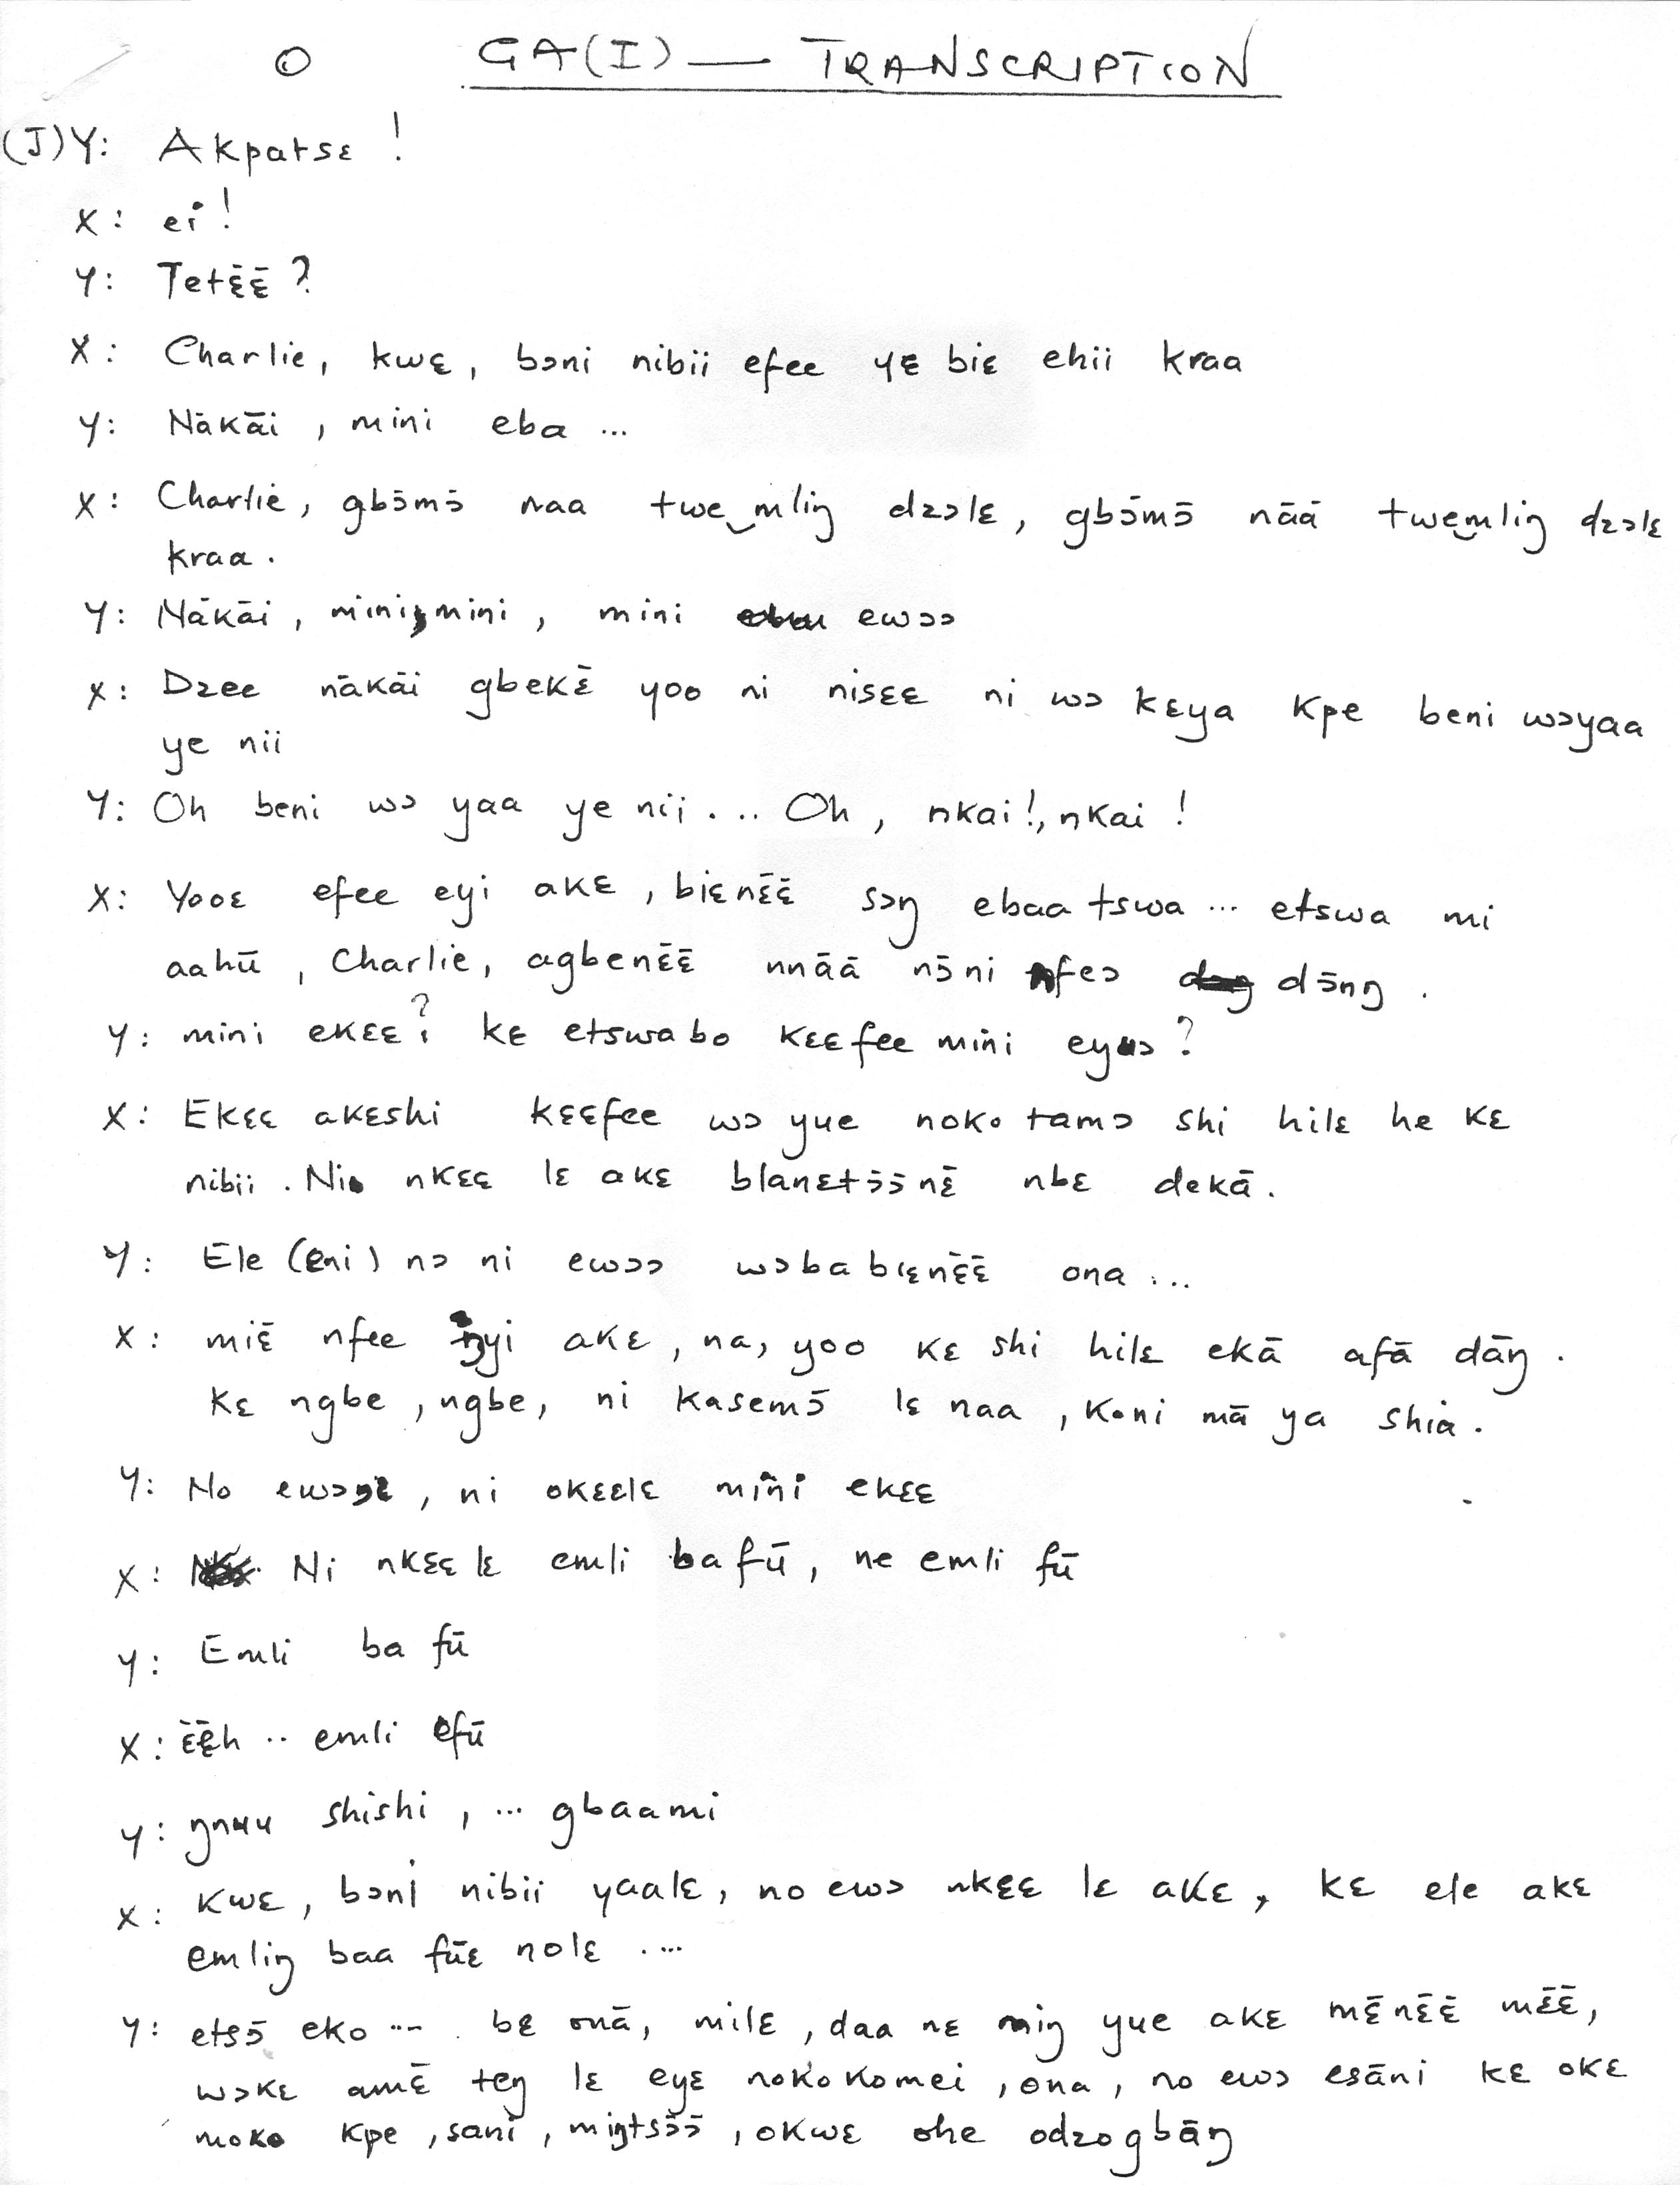 GA(I) — TRANSCRIPTION
(J)Y: Akpatsɛ !
X: ei !
Y: Tetɛ̄ɛ̄ ?
X: Charlie, kwɛ, bɔni nibii efee yɛ biɛ ehii kraa
Y: Nākāi, mini eba ...
X: Charlie, gbɔ̄mɔ̄ naa twe‿mliŋ dzɔlɛ, gbɔ̄mɔ̄ nāā twe‿mliŋ dzɔlɛ
kraa.
Y: Nākāi, mini, mini, mini ewɔɔ
X: Dzee nākāi gbekɛ̄ yoo ni nisɛɛ ni wɔ kɛya kpe beni wɔyaa
ye nii
Y: Oh beni wɔ yaa ye nii ... Oh, nkai!, nkai !
X: Yooɛ efee eyi akɛ, biɛnɛ̄ɛ̄ sɔŋ ebaa tswa ... etswa mi
aahū, Charlie, agbenɛ̄ɛ̄ nnāā nɔ̄ni nfeɔ dɔ̄nŋ.
Y: mini ekɛɛ? kɛ etswa bo kɛɛfee mini eyɔ?
X: Ekɛɛ akɛshi kɛɛfee wɔ yue noko tamɔ shi hilɛ he kɛ
nibii. Ni nkɛɛ lɛ akɛ blanɛtɔ̄ɔ̄nɛ̄ nbɛ dekā.
Y: Ele (eni) nɔ ni ewɔɔ wɔba biɛnɛ̄ɛ̄ ona ...
X: miɛ̄ nfee ŋyi akɛ, na, yoo kɛ shi hilɛ ekā afā dāŋ.
kɛ ngbe, ngbe, ni kasemɔ̄ lɛ naa, koni mā ya shia.
Y: No , ni okɛɛlɛ mini ekɛɛ
X: Ni nkɛɛ lɛ emli ba fū, ne emli fū
Y: Emli ba fū
X: ɛ̄ɛ̄h .. emli efū
Y: shishi, ... gbaami
X: Kwɛ, bɔni nibii yaalɛ, no ewɔ nkɛɛ lɛ akɛ, kɛ ele akɛ
emliŋ baa fūɛ nolɛ ....
Y: etsɔ̄ eko ... bɛ onā, milɛ, daa nɛ miŋ yue akɛ mɛ̄nɛ̄ɛ̄ mɛ̄ɛ̄,
wɔkɛ amɛ̄ teŋ lɛ eyɛ noko komei, ona, no ewɔ esāni kɛ okɛ
moko kpe, sani, miŋtsɔ̄ɔ̄, okwɛ ohe odzogbāŋ